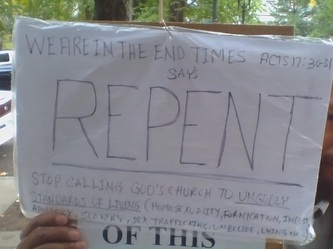 WE ARE IN THE END TIMES ACTS 17:30-31
SAYS
REPENT
STOP CALLING GOD'S CHURCH TO UNGODLY
STANDARDS OF LIVING (HOMOSEXUALITY, FORNICATION,
SEX TRAFFICKING, UNBELIEF,
OF THIS